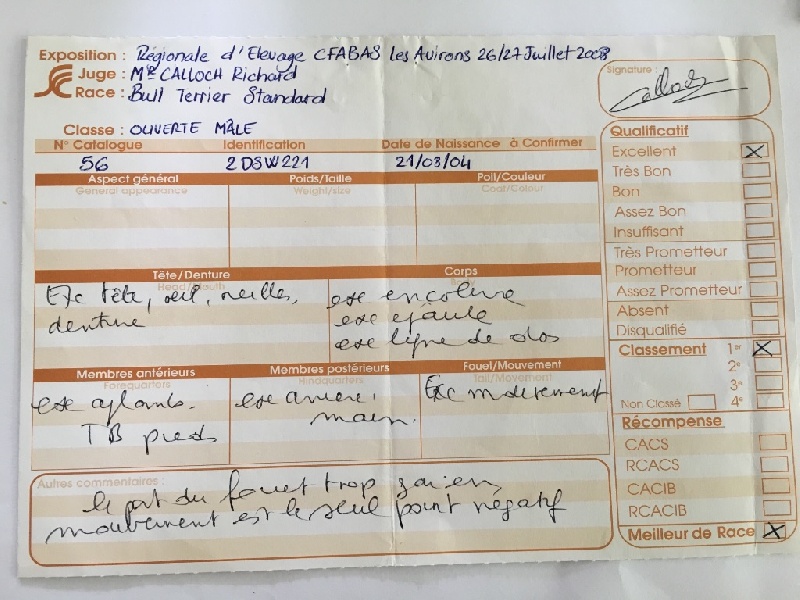 Exposition : Régionale d'Elevage CFABAS les Avirons 26/27 Juillet 2008
Juge : Mr CALLOCH Richard
Race : Bull Terrier Standard
Signature :
Classe : OUVERTE MÂLE
N° Catalogue Identification Date de Naissance à Confirmer
56 2DSW221 21/03/04
Aspect général Poids/Taille Poil/Couleur
General appearance Weight/size Coat/Colour
Tête/Denture Corps
Head/Mouth
Exc tête, oeil, oreilles, denture
exc encolure
exc épaule
exc ligne de dos
Membres antérieurs Membres postérieurs Fouet/Mouvement
Forequarters Hindquarters Tail/Movement
exc aplombs.
TB pieds
exc arrière
main.
Exc mouvement
Autres commentaires :
le port du fouet trop gai en
mouvement est le seul point négatif
Qualificatif
Excellent X
Très Bon
Bon
Assez Bon
Insuffisant
Très Prometteur
Prometteur
Assez Prometteur
Absent
Disqualifié
Classement 1er X
2e
3e
Non Classé 4e
Récompense
CACS
RCACS
CACIB
RCACIB
Meilleur de Race X